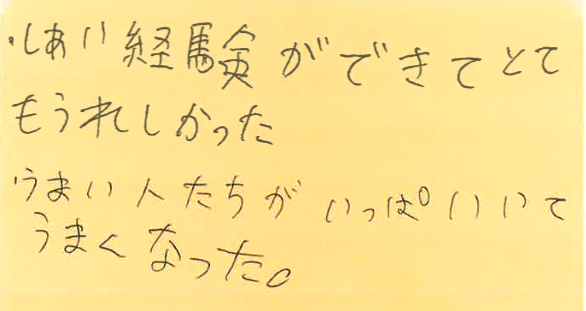 ・しあい経験ができてとて
もうれしかった
・うまい人たちがいっぱいいて
うまくなった。